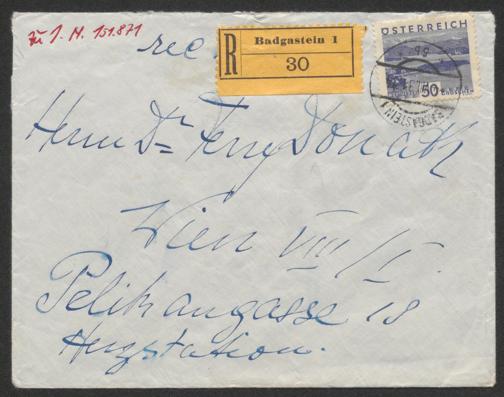 Zu I. N. 151.871
rec.
R
Badgastein 1
30
ÖSTERREICH
50
BADGASTEIN 1
Herrn Dr Ferry Donath
Wien VIII/I.
Pelikangasse 18
Herzstation.